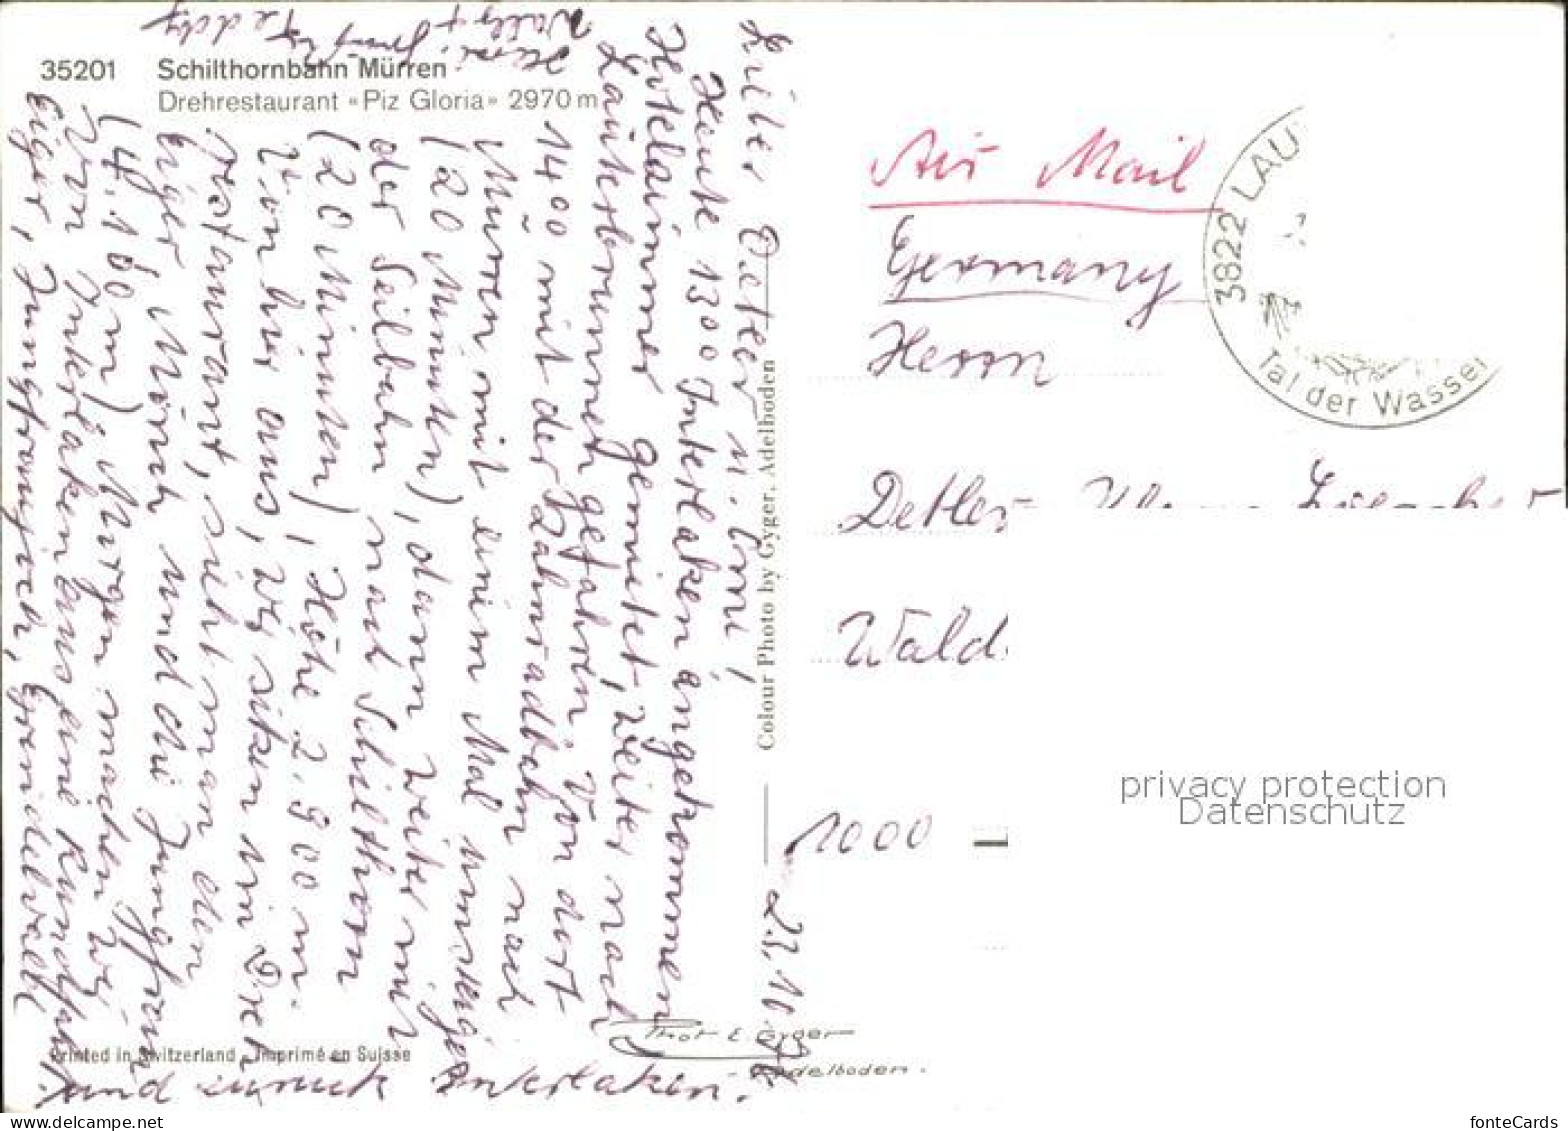 35201 Schilthornbahn Mürren
Drehrestaurant «Piz Gloria» 2970 m
23.10.
Lieber Detlev u. Omi,
Heute 1300 Interlaken angekommen
Hotelzimmer gemietet, weiter nach
Lauterbrunnen gefahren. Von dort
1400 mit der Zahnradbahn nach
Mürren mit einem Mal umsteigen
(20 Minuten), dann weiter mit
der Seilbahn nach Schilthorn
(20 Minuten), Höhe 2.900 m.
Von hier aus, wir sitzen im Dreh
restaurant, sieht man den
Eiger, Mönch und die Jungfrau
(4.160m). Morgen machen wir
von Interlaken aus eine Rundfahrt
Eiger, Jungfraujoch, Grindelwald
und zurück Interlaken.
Teddy
Colour Photo by Gyger, Adelboden
Printed in Switzerland Imprimé en Suisse
Phot E. Gyger
Adelboden.
Air Mail
Germany
Herrn
Detlev
Wald
1000
3822 LAU
Tal der Wasser
privacy protection
Datenschutz
www.delcampe.net
fonteCards